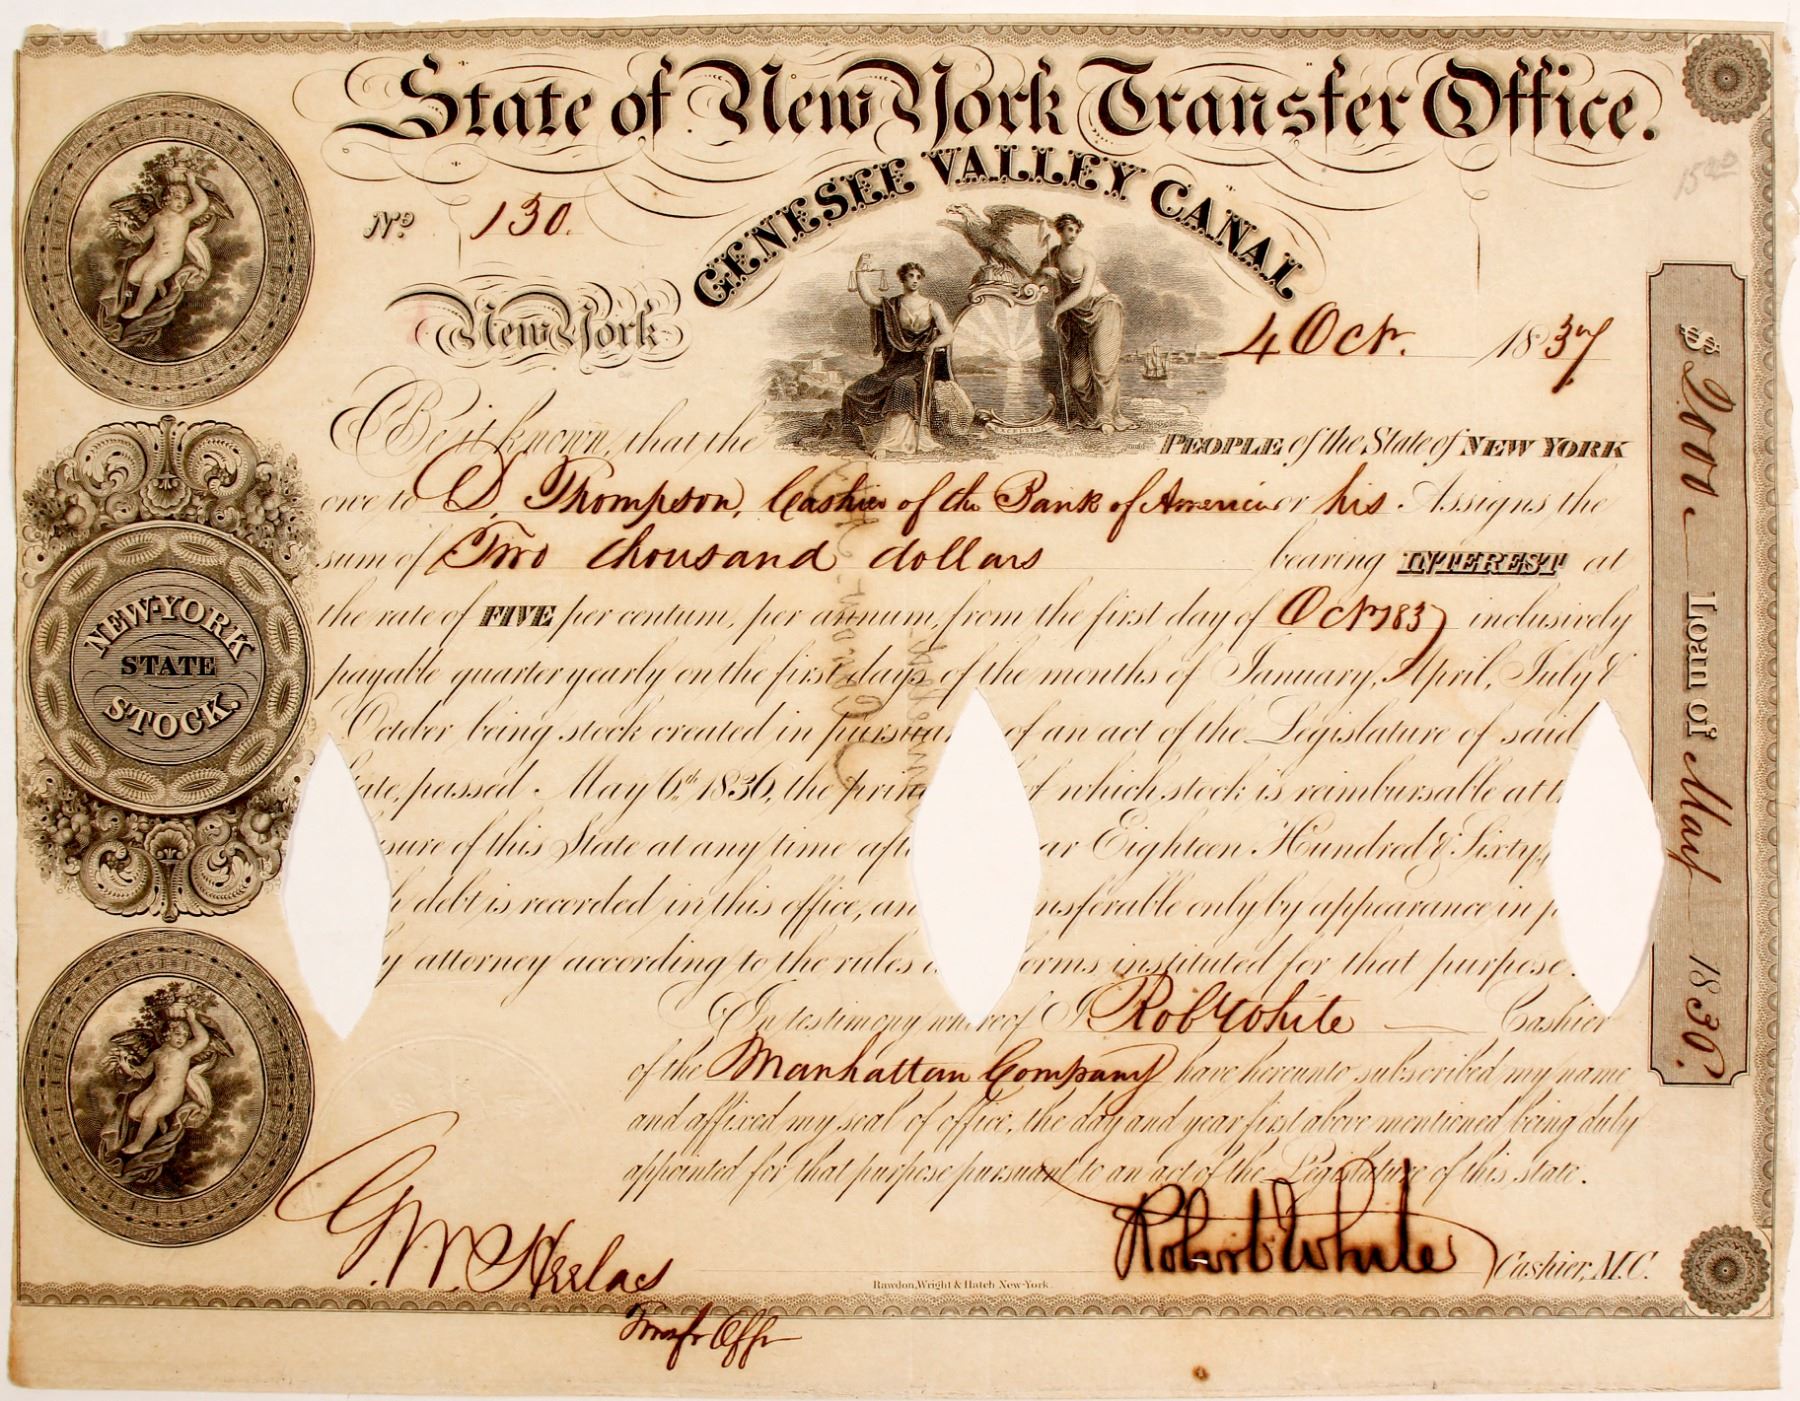 State of New York Transfer Office.
GENESEE VALLEY CANAL
15 20
No 130.
New York 4 Oct. 1837
EXCELSIOR
Be it known, that the PEOPLE of the State of NEW YORK
owe to D. Thompson, Cashier of the Bank of America or his Assigns the
sum of Two thousand dollars bearing INTEREST at
the rate of FIVE per centum, per annum, from the first day of Oct 1837 inclusively
payable quarter yearly on the first days of the months of January, April, July &
October being stock created in pursua of an act of the Legislature of said
ate, passed May 6th 1836, the prin of which stock is reimbursable at t
sure of this State at any time aft ar Eighteen Hundred & Sixty,
h debt is recorded in this office, an nsferable only by appearance in p
y attorney according to the rules orms instituted for that purpose.
In testimony whereof I Rob White Cashier
of the Manhattan Company have hereunto subscribed my name
and affixed my seal of office, the day and year first above mentioned being duly
appointed for that purpose pursuant to an act of the Legislature of this state.
Robert White Cashier, M.C.
Transfr Offr
Rawdon, Wright & Hatch New-York.
NEW-YORK
STATE
STOCK.
$ 2000 Loan of May 1836.